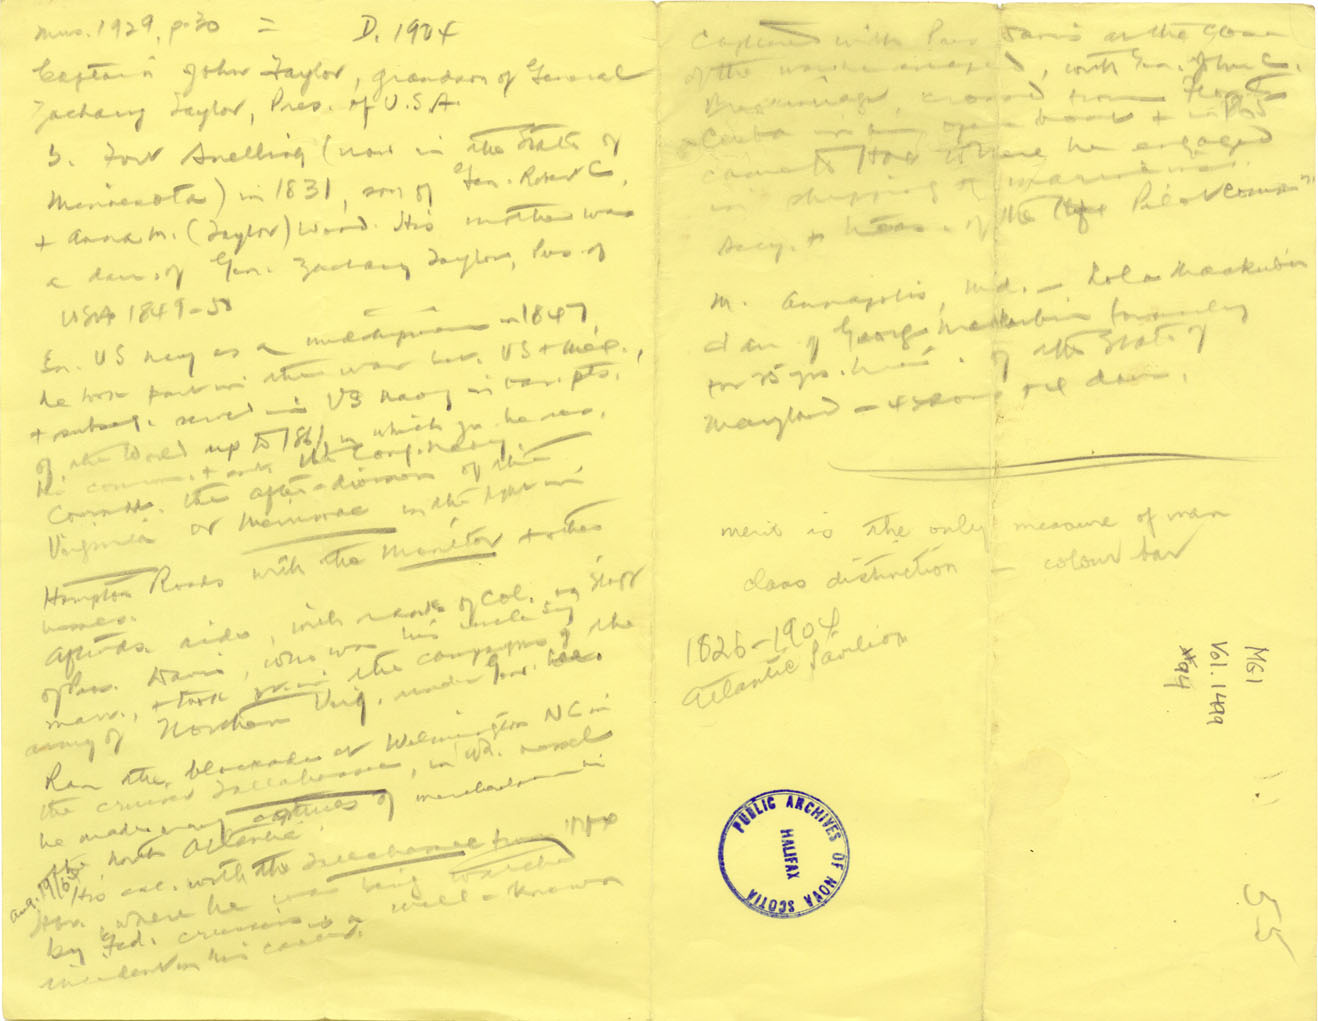 Mus. 1929, p. 30 = D. 1904
Captain John Taylor, grandson of General
Zachary Taylor, Pres. of U.S.A.
b. Fort Snelling (now in the State of
Minnesota) in 1831, son of Gen. Robert C.
+ Anna M. (Taylor) Wood. His mother was
a dau. of Gen. Zachary Taylor, Pres. of
USA 1849-50
En. US Navy as a midshipman in 1847,
he took part in the war bet. US + Mex.,
+ subseq. served in US Navy in var. pts.
of the World up to 1861, in which yr. he res.
his comm. + ent. the Conf. Navy.
Commd. the after-division of the
Virginia or Merrimac in the fight in
Hampton Roads with the Monitor + other
vessels.
Aftwds. aide, with rank of Col. on Staff
of Pres. Davis, who was his uncle by
marr., + took part in the campaigns of the
army of Northern Virg. under Gen. Lee.
Ran the blockade at Wilmington NC in
the cruiser Tallahassee, in wh. vessel
he made many captures of merchantmen in
the North Atlantic
His esc. with the Tallahassee from Hfx
Aug. 19/64
Hbr. where he was being watched
by Fed. cruisers is a well-known
incident in his career.
Captured with Pres. Davis at the close
of the war he escaped, with Gen. John C.
Breckinridge, crossed from Florida
to Cuba in an open boat + in 1865
came to Hfx where he engaged
in shipping + marine ins.
Secy. + treas. of the Hfx Pilot Comm
M. Annapolis, Md. – Lola Mackubin
dau of George Mackubin formerly
for 25 yrs. treas. of the State of
Maryland – 4 sons + 2 daus.
merit is the only measure of man
class distinction – colour bar
1826-1904
Atlantic Pavilion
MG1
Vol. 1499
#94
PUBLIC ARCHIVES OF NOVA SCOTIA
HALIFAX
55